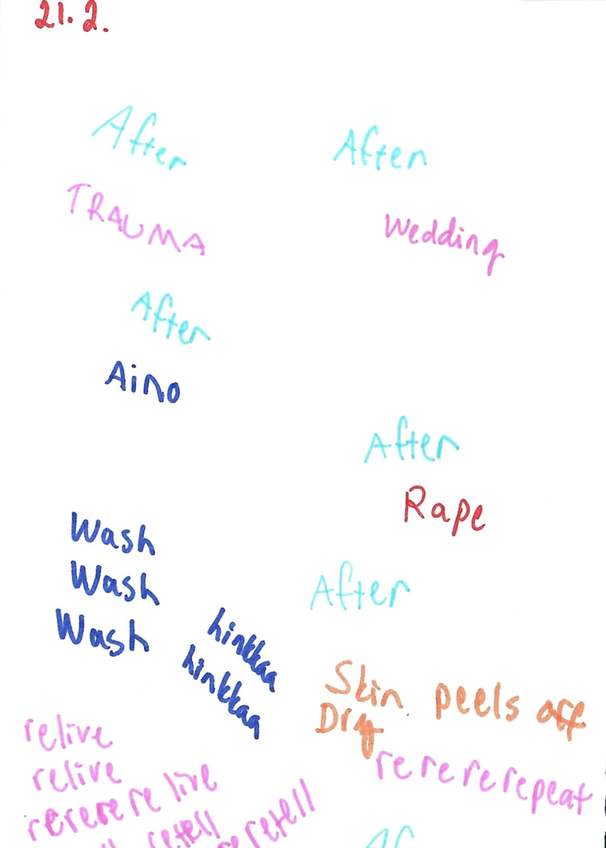 21.2.
After
After
TRAUMA
Wedding
After
Aino
After
Rape
Wash
Wash
Wash
After
hinkkaa
hinkkaa
Skin peels off
Dry
relive
relive
rerererelive
rererererepeat
retell
retell